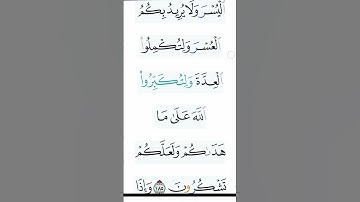 اَ۬لْيُسْرَ وَلَا يُرِيدُ بِكُمُ
اُ۬لْعُسْرَ وَلِتُكْمِلُوا۟
اُ۬لْعِدَّةَ وَلِتُكَبِّرُوا۟
اُ۬للَّهَ عَلَىٰ مَا
هَدَىٰكُمْ وَلَعَلَّكُمْ
تَشْكُرُونَ ١٨٥ وَإِذَا